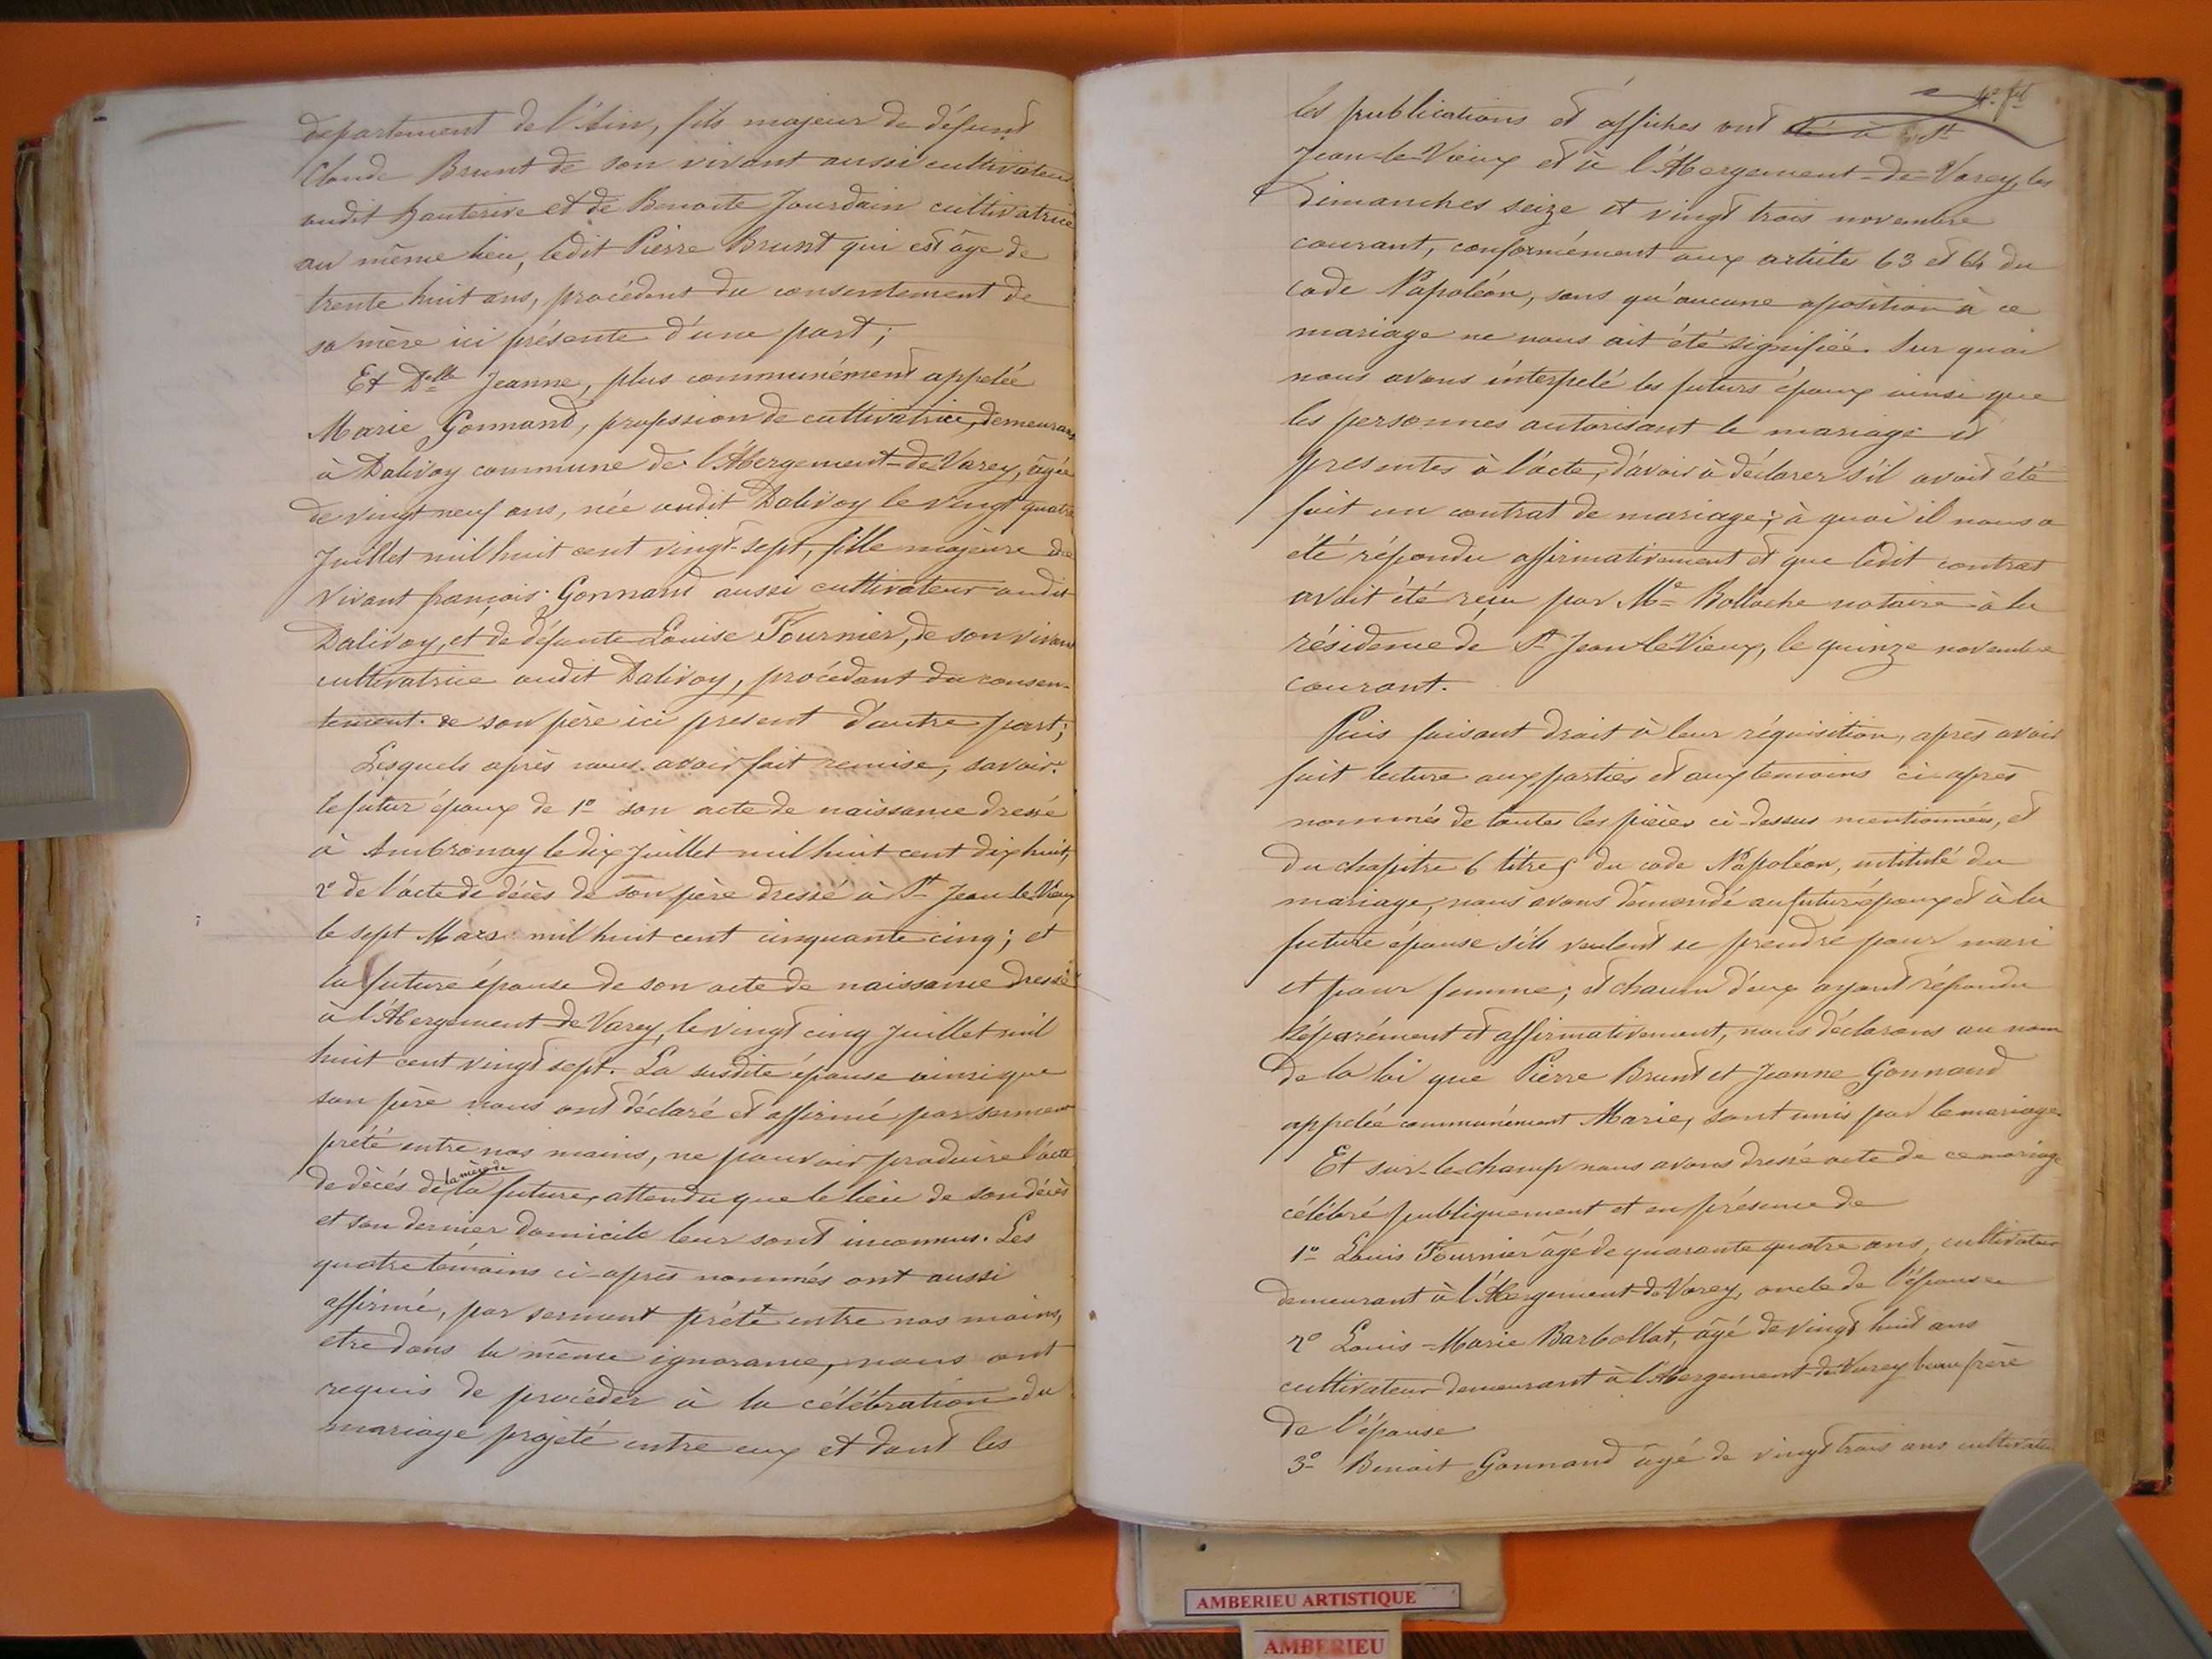 département de l'Ain, fils majeur de défunt
Claude Brunt de son vivant aussi cultivateur
audit hauterive et de Benoite Jourdain cultivatrice
au même lieu, ledit Pierre Brunt qui est âgé de
trente huit ans, procédant du consentement de
sa mère ici présente d'une part;
Et Delle Jeanne, plus communément appelée
Marie Gonnand, profession de cultivatrice, demeurant
à Dalivoy commune de l'Abergement-de-Varey, âgée
de vingt neuf ans, née audit Dalivoy le vingt quatre
Juillet mil huit cent vingt-sept, fille majeure de
vivant françois Gonnand aussi cultivateur audit
Dalivoy, et de défunte Louise Fournier, de son vivant
cultivatrice audit Dalivoy, procédant du consen-
tement de son père ici présent d'autre part;
Lesquels après nous avoir fait remise, savoir:
le futur époux de 1º son acte de naissance dressé
à Ambronay le dix Juillet mil huit cent dix huit,
2º de l'acte de décès de son père dressé à St Jean le Vieux
le sept Mars mil huit cent cinquante cinq; et
la future épouse de son acte de naissance dressé
à l'Abergement-de-Varey, le vingt cinq Juillet mil
huit cent vingt sept. La susdite épouse ainsi que
son père nous ont déclaré et affirmé par serment
prêté entre nos mains, ne pouvoir produire l'acte
de décès de la mère de la future, attendu que le lieu de son décès
et son dernier domicile leur sont inconnus. Les
quatre témoins ci-après nommés ont aussi
affirmé, par serment prété entre nos mains,
etre dans la même ignorance, nous ont
requis de procéder à la célébration du
mariage projeté entre eux et dont les
les publications et affiches ont été à St
Jean-le-Vieux et à l'Abergement-de-Varey, les
Dimanches seize et vingt trois novembre
courant, conformément aux articles 63 et 64 du
code Napoléon, sans qu'aucune oposition à ce
mariage ne nous ait été signifiée. Sur quoi
nous avons interpelé les futurs époux ainsi que
les personnes autorisant le mariage et
presentes à l'acte, d'avoir à déclarer s'il avait été
fait un contrat de mariage; à quoi il nous a
été répondu affirmativement et que ledit contrat
avait été reçu par Me Bollache notaire à la
résidence de St Jean-le-Vieux, le quinze novembre
courant.
Puis faisant droit à leur réquisition, après avoir
fait lecture aux parties et aux temoins ci-après
nommés de toutes les pièces ci-dessus mentionnées, et
du chapitre 6 titre 5 du code Napoléon, intitulé du
mariage, nous avons demandé au futur époux et à la
future épouse s'ils veulent se prendre pour mari
et pour femme; et chacun d'eux ayant répondu
séparément et affirmativement, nous déclarons au nom
de la loi que Pierre Brunt et Jeanne Gonnand
appelée communément Marie, sont unis par le mariage.
Et sur-le-champ nous avons dressé acte de ce mariage
célébré publiquement et en présence de
1º Louis Fournier âgé de quarante quatre ans, cultivateur
demeurant à l'Abergement-de-Varey, oncle de l'épouse
2º Louis-Marie Barbollat, âgé de vingt huit ans
cultivateur demeurant à l'Abergement-de-Varey beau frère
de l'épouse
3º Benoit Gonnand âgé de vingt trois ans cultivateur
AMBERIEU ARTISTIQUE
AMBERIEU